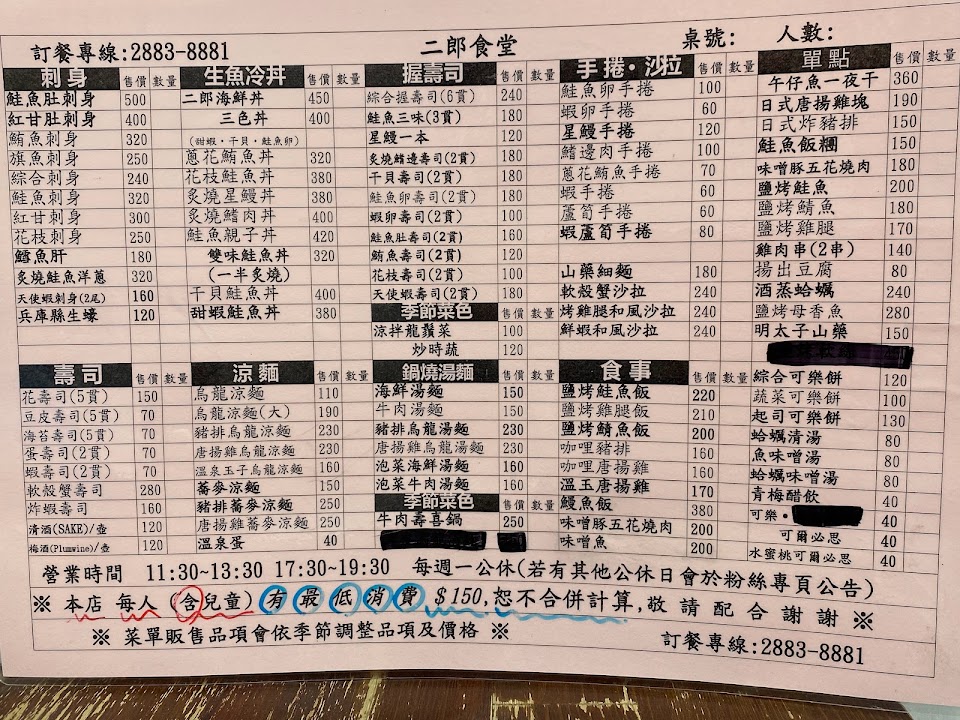 訂餐專線:2883-8881 二郎食堂 桌號: 人數:
刺身 售價 數量
鮭魚肚刺身 500
紅甘肚刺身 400
鮪魚刺身 320
旗魚刺身 250
綜合刺身 240
鮭魚刺身 320
紅甘刺身 300
花枝刺身 250
鱈魚肝 180
炙燒鮭魚洋蔥 320
天使蝦刺身(2尾) 160
兵庫縣生蠔 120
生魚冷丼 售價 數量
二郎海鮮丼 450
三色丼 400
(甜蝦·干貝·鮭魚卵)
蔥花鮪魚丼 320
花枝鮭魚丼 380
炙燒星鰻丼 380
炙燒鰭肉丼 400
鮭魚親子丼 420
雙味鮭魚丼 320
(一半炙燒)
干貝鮭魚丼 400
甜蝦鮭魚丼 380
握壽司 售價 數量
綜合握壽司(6貫) 240
鮭魚三味(3貫) 180
星鰻一本 120
炙燒鰭邊壽司(2貫) 180
干貝壽司(2貫) 180
鮭魚卵壽司(2貫) 180
蝦卵壽司(2貫) 100
鮭魚肚壽司(2貫) 160
鮪魚壽司(2貫) 120
花枝壽司(2貫) 100
天使蝦壽司(2貫) 180
季節菜色 售價 數量
涼拌龍鬚菜 100
炒時蔬 120
手捲·沙拉 售價 數量
鮭魚卵手捲 100
蝦卵手捲 60
星鰻手捲 120
鰭邊肉手捲 100
蔥花鮪魚手捲 70
蝦手捲 60
蘆筍手捲 60
蝦蘆筍手捲 80
山藥細麵 180
軟殼蟹沙拉 240
烤雞腿和風沙拉 240
鮮蝦和風沙拉 240
單點 售價 數量
午仔魚一夜干 360
日式唐揚雞塊 190
日式炸豬排 150
鮭魚飯糰 150
味噌豚五花燒肉 180
鹽烤鮭魚 200
鹽烤鯖魚 180
鹽烤雞腿 170
雞肉串(2串) 140
揚出豆腐 80
酒蒸蛤蠣 240
鹽烤母香魚 280
明太子山藥 150
綜合可樂餅 120
蔬菜可樂餅 100
起司可樂餅 130
蛤蠣清湯 80
魚味噌湯 80
蛤蠣味噌湯 80
青梅醋飲 40
可樂· 40
可爾必思 40
水蜜桃可爾必思 40
壽司 售價 數量
花壽司(5貫) 150
豆皮壽司(5貫) 70
海苔壽司(5貫) 70
蛋壽司(2貫) 70
蝦壽司(2貫) 70
軟殼蟹壽司 280
炸蝦壽司 160
清酒(SAKE)/壺 120
梅酒(Plumwine)/壺 120
涼麵 售價 數量
烏龍涼麵 110
烏龍涼麵(大) 190
豬排烏龍涼麵 230
唐揚雞烏龍涼麵 230
溫泉玉子烏龍涼麵 160
蕎麥涼麵 150
豬排蕎麥涼麵 250
唐揚雞蕎麥涼麵 250
溫泉蛋 40
鍋燒湯麵 售價 數量
海鮮湯麵 150
牛肉湯麵 150
豬排烏龍湯麵 230
唐揚雞烏龍湯麵 230
泡菜海鮮湯麵 160
泡菜牛肉湯麵 160
季節菜色 售價 數量
牛肉壽喜鍋 250
食事 售價 數量
鹽烤鮭魚飯 220
鹽烤雞腿飯 210
鹽烤鯖魚飯 200
咖哩豬排 160
咖哩唐揚雞 160
溫玉唐揚雞 170
鰻魚飯 380
味噌豚五花燒肉 200
味噌魚 200
營業時間 11:30~13:30 17:30~19:30 每週一公休(若有其他公休日會於粉絲專頁公告)
※ 本店 每人(含兒童)有最低消費 $150,恕不合併計算,敬請配合謝謝 ※
※ 菜單販售品項會依季節調整品項及價格 ※ 訂餐專線:2883-8881